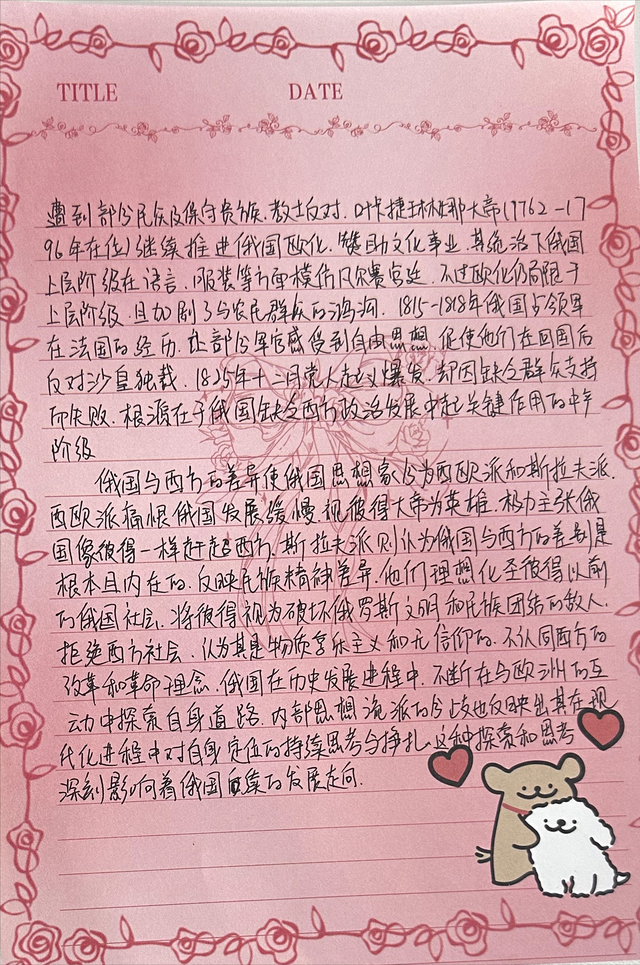 TITLE DATE
遭到部分民众及保守贵族、教士反对.叶卡捷琳娜大帝(1762-17
96年在位)继续推进俄国欧化.赞助文化事业.其统治下俄国
上层阶级在语言、服装等方面模仿凡尔赛宫廷.不过欧化仍局限于
上层阶级.且加剧了与农民群众的鸿沟.1815-1818年俄国占领军
在法国的经历.让部分军官感受到自由思想.促使他们在回国后
反对沙皇独裁.1825年十二月党人起义爆发.却因缺乏群众支持
而失败.根源在于俄国缺乏西方政治发展中起关键作用的中产
阶级
俄国与西方的差异使俄国思想家分为西欧派和斯拉夫派.
西欧派痛恨俄国发展缓慢视彼得大帝为英雄.极力主张俄
国像彼得一样赶超西方.斯拉夫派则认为俄国与西方的差别是
根本且内在的.反映民族精神差异.他们理想化圣彼得以前
的俄国社会.将彼得视为破坏俄罗斯文明和民族团结的敌人.
拒绝西方社会.认为其是物质享乐主义和无信仰的.不认同西方的
改革和革命理念.俄国在历史发展进程中.不断在与欧洲的互
动中探索自身道路.内部思想流派的分歧也反映出其在现
代化进程中对自身定位的持续思考与挣扎.这种探索和思考
深刻影响着俄国后续的发展走向.